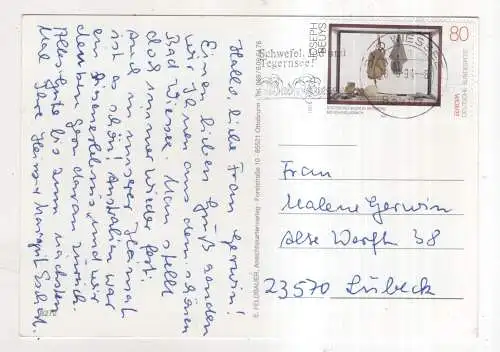 Hallo, liebe Frau Gerwin!
Einen lieben Gruß senden
wir Ihnen aus dem schönen
Bad Wiessee. Man stellt
doch immer wieder fest.
Auch in unserer Heimat
ist es schön! Australien war
ein Superlebnis und wir
denken gern daran zurück.
Alles Gute bis zum nächsten
Mal Ihre Heiner Margrit
E. FELDBAUER, Ansichtskartenverlag · Forststraße 10 · 85521 Ottobrunn · Tel. 089/6094176
Schwefel, Jod und
Tegernsee!
Bad Wiessee
JOSEPH
BEUYS
80
EUROPA
DEUTSCHE BUNDESPOST
Frau
Malene Gerwin
Alse Werft 38
23570 Lübeck